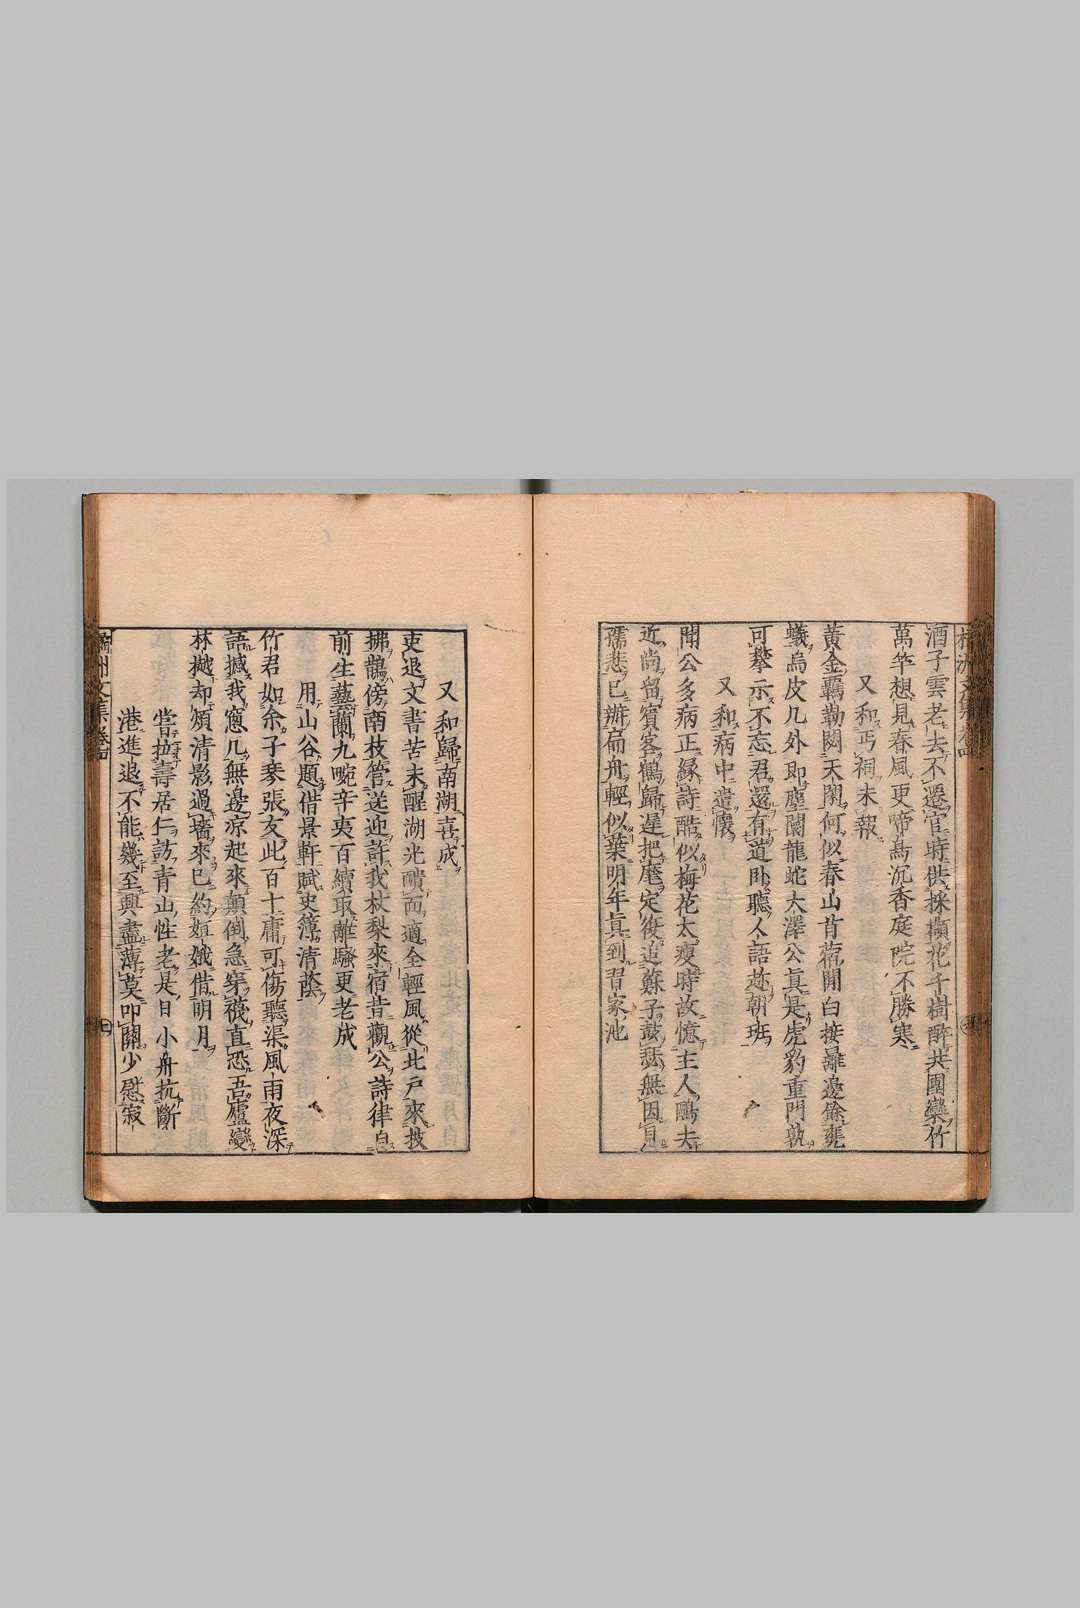 酒子雲老去不遷官時供採擷花千樹醉共團欒竹
萬竿想見春風更啼鳥沉香庭院不勝寒
又和丐祠未報
黃金羈勒閟天閑何似春山苜蓿閒白接䍦邊餘甕
蟻烏皮几外即塵闤龍蛇大澤公真是虎豹重門孰
可攀示不忘君還有道臥聽人語趁朝班
又和病中遣懷
閒公多病正緣詩酷似梅花太瘦時故憶主人鷗去
近尚留賓客鶴歸遲把麾定後追蘇子鼓瑟無因
孺悲已辦扁舟輕似葉明年真到習家池
又和歸南湖喜成
吏退文書苦未醒湖光頮面適全輕風從北戶來披
拂鵲傍南枝管送迎許我杖藜來宿昔觀公詩律自
前生藝蘭九畹辛夷百續取離騷更老成
用山谷題借景軒賦史簿清蔭
竹君如余子琴張友此百十庸可傷聽渠風雨夜深
語撼我窻几無邊凉起來顛倒急穿襪直恐吾廬變
林樾却煩清影過墻來已約姮娥借明月
嘗拉壽居仁訪青山性老是日小舟抗斷
港進退不能幾至興盡薄莫叩關少慰寂